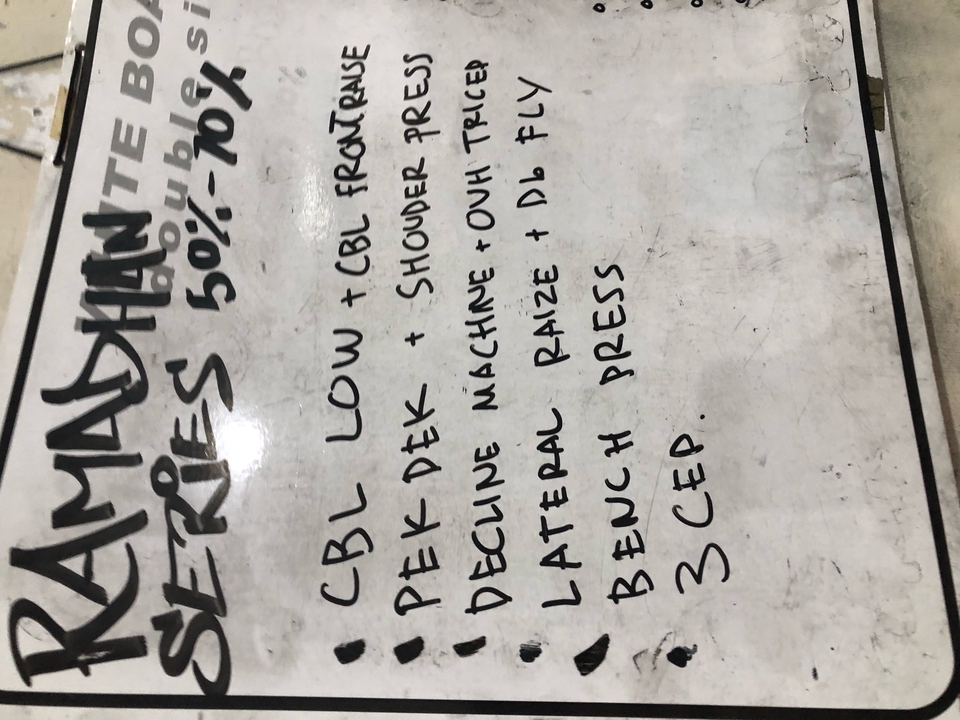 RAMADHAN
SERIES 50%-70%
• CBL LOW + CBL FRONT RAISE
• PEK DEK + SHOUDER PRESS
• DECLINE MACHINE + OVH TRICEP
• LATERAL RAIZE + Db FLY
• BENCH PRESS
• 3 CEP.